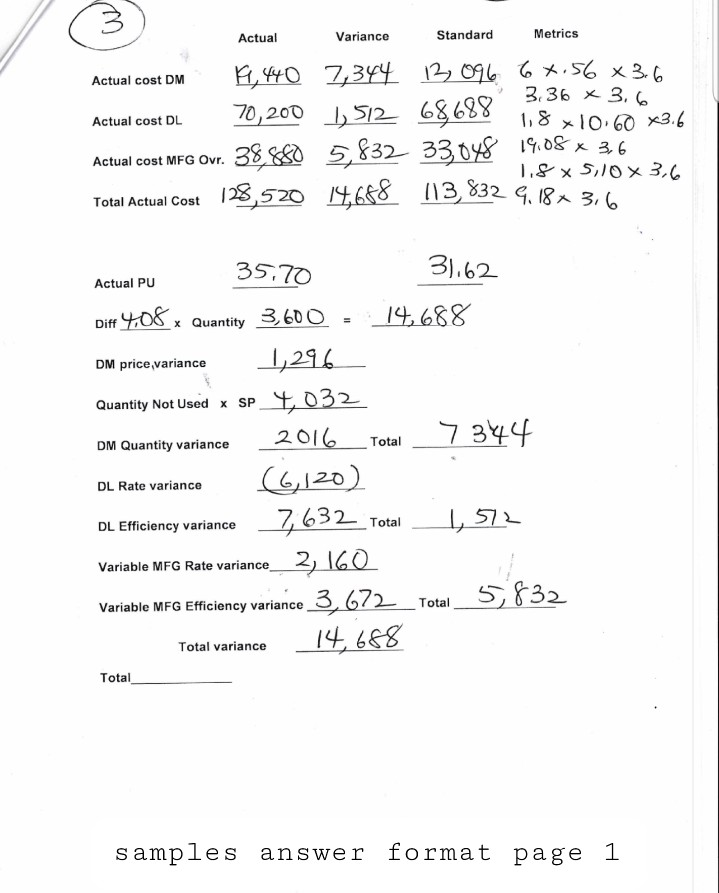 3
Actual Variance Standard Metrics
Actual cost DM 19,440 7,344 12,096 6 x .56 x 3.6
3.36 x 3.6
Actual cost DL 70,200 1,512 68,688 1.8 x 10.60 x 3.6
19.08 x 3.6
Actual cost MFG Ovr. 38,880 5,832 33,048
1.8 x 5.10 x 3.6
Total Actual Cost 128,520 14,688 113,832 9.18 x 3.6
Actual PU 35.70 31.62
Diff 4.08 x Quantity 3,600 = 14,688
DM price,variance 1,296
Quantity Not Used x SP 4,032
DM Quantity variance 2016 Total 7344
DL Rate variance (6,120)
DL Efficiency variance 7,632 Total 1,512
Variable MFG Rate variance 2,160
Variable MFG Efficiency variance 3,672 Total 5,832
Total variance 14,688
Total
samples answer format page 1